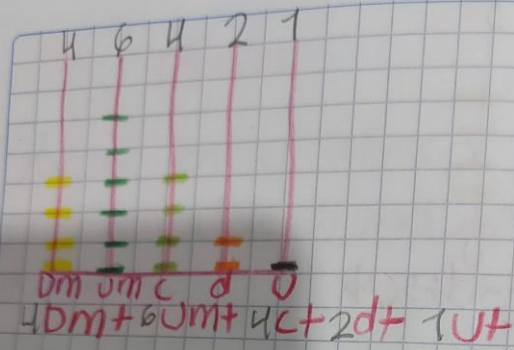 4 6 4 2 1
Dm Um C d U
4Dm+6Um+4c+2d+1U+